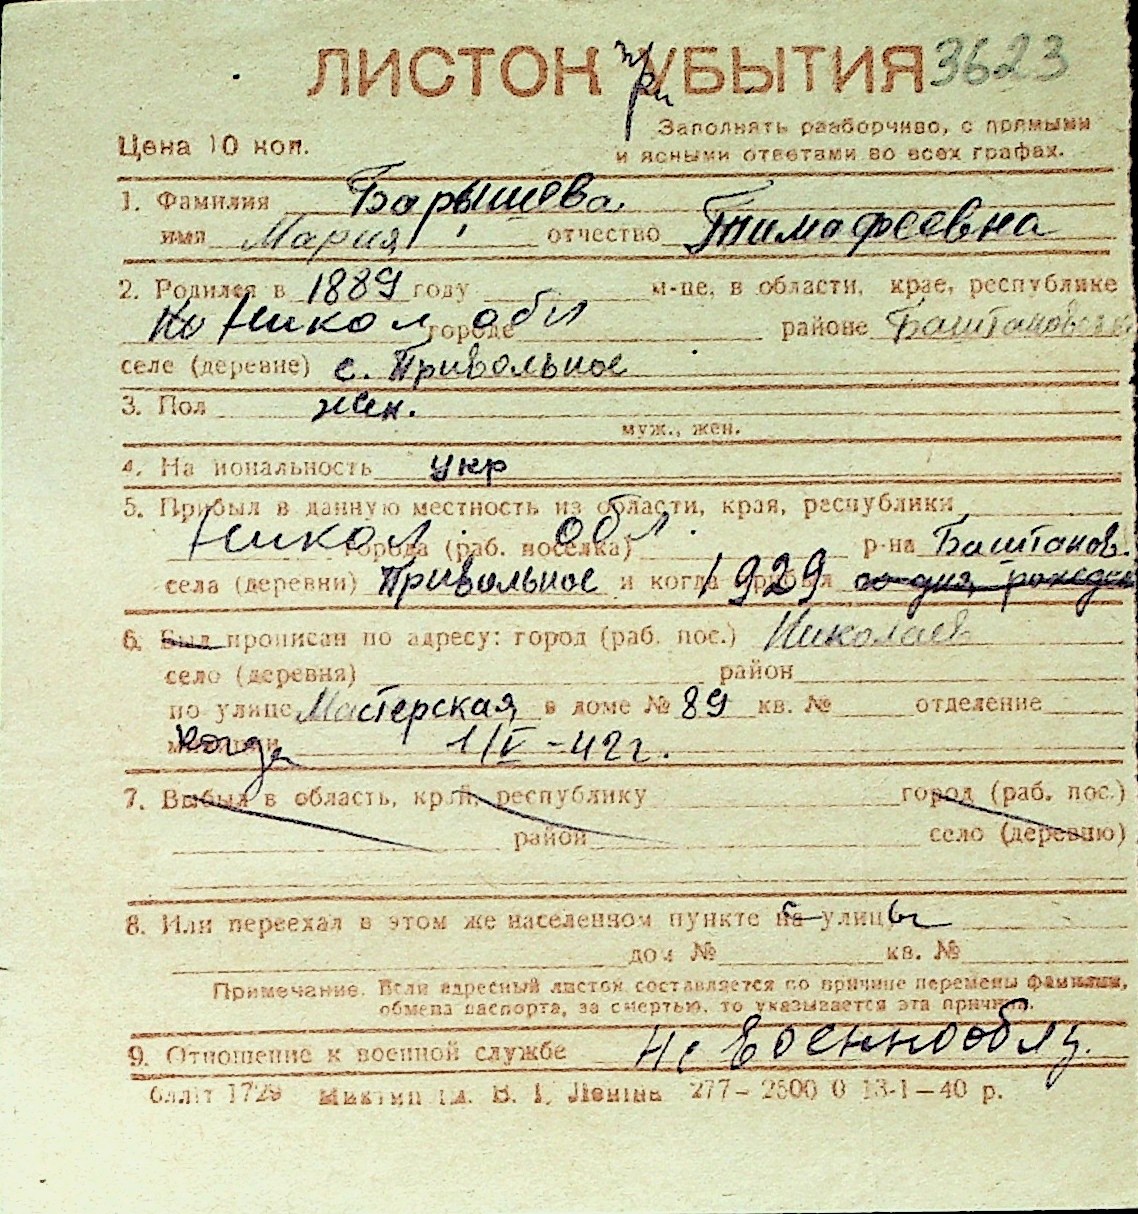 ЛИСТОК при УБЫТИЯ 3623
Цена 10 коп.
Заполнять разборчиво, с прямыми
и ясными ответами во всех графах.
1. Фамилия Барышева
имя Мария отчество Тимофеевна
2. Родился в 1889 году м-це, в области, крае, республике
Никол обл городе районе Баштановск
селе (деревне) с. Привольное
3. Пол жен.
муж., жен.
4. На иональность укр
5. Прибыл в данную местность из области, края, республики
Никол. обл. города (раб. поселка) р-на Баштанов.
села (деревни) Привольное и когда прибыл 1929 со дня рожден
6. Был прописан по адресу: город (раб. пос.) Николаев
село (деревня) район
по улице Мастерская в доме № 89 кв. № отделение
когда 1/V-42г.
7. Выбыл в область, край, республику город (раб. пос.)
район село (деревню)
8. Или переехал в этом же населенном пункте на улицы
дом № кв. №
Примечание. Если адресный листок составляется по причине перемены фамилии,
обмена паспорта, за смертью, то указывается эта причина.
9. Отношение к военной службе Не военнообяз.
1729 ім. В. І. Леніна 277—2500 0 13-1—40 р.